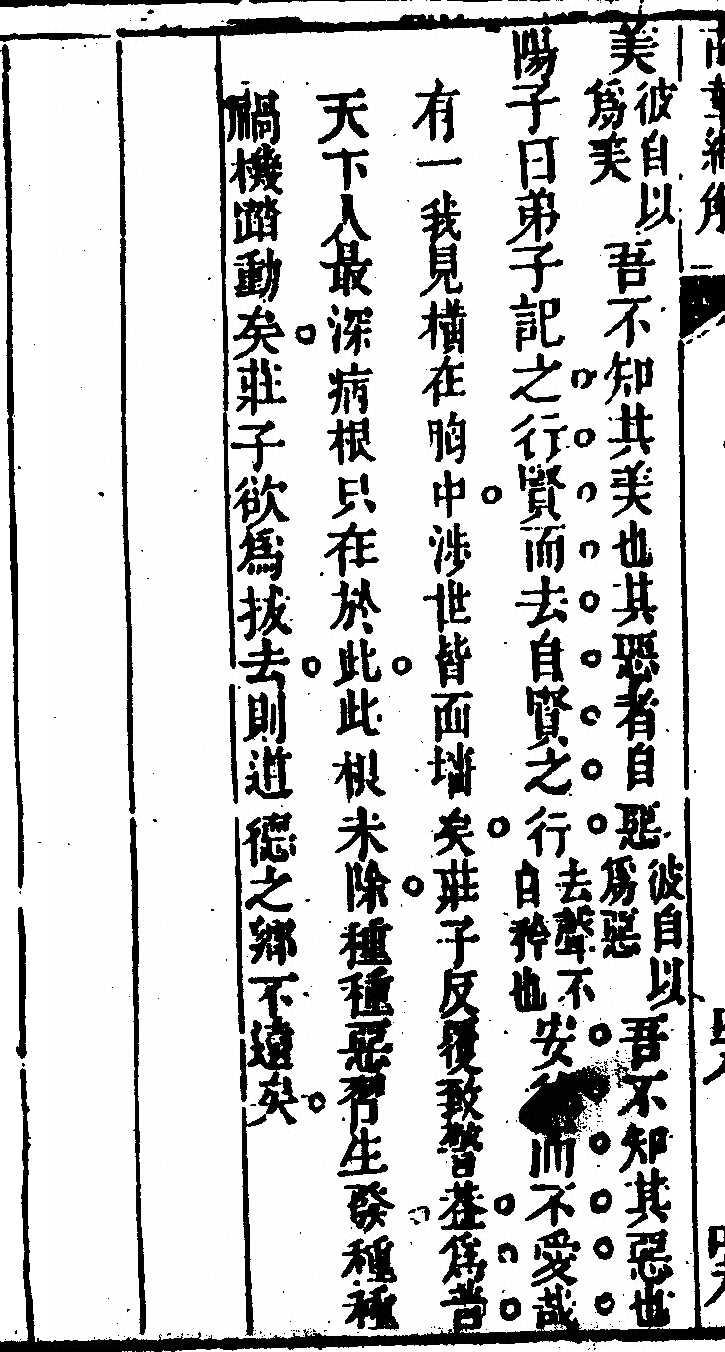 美彼自以爲美吾不知其美也其惡者自惡彼自以爲惡吾不知其惡也
陽子曰弟子記之行賢而去自賢之行去聲不自矜也安而不愛哉
有一我見橫在胸中涉世皆面墻矣莊子反覆致警葢爲普
天下人最深病根只在於此此根未除種種惡習生發種種
禍機踏動矣莊子欲爲拔去則道德之鄉不遠矣